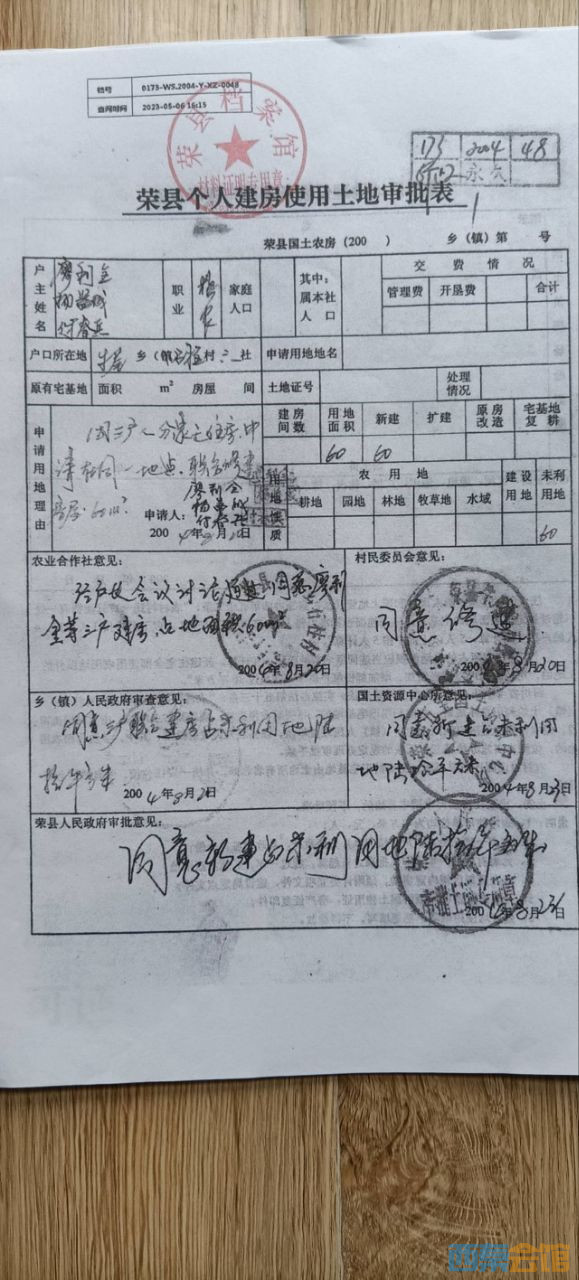 档号 0173-WS.2004-Y-XZ-0048
查阅时间 2023-05-06 16:15
荣县档案馆
材料证明专用章
173 2004 48
永久
荣县个人建房使用土地审批表
荣县国土农房(200 ) 乡(镇)第 号
户主姓名 廖利全 职业 务农 家庭人口 其中:属本社人口 交费情况
管理费 开垦费 合计
户口所在地 乡(镇) 村 社 申请用地地名
原有宅基地 面积 m² 房屋 间 土地证号 处理情况
申请用地理由
建房间数 用地面积 新建 扩建 原房改造 宅基地复耕
60 60
因三户人分家无住房.申
请在同一地点.联合修建
住房.60m²
用地性质 农用地 建设用地 未利用地
耕地 园地 林地 牧草地 水域
60
申请人: 廖利全
2004年8月20日
农业合作社意见:
经户代会议讨论通过同意廖利
全等三户建房占地面积60m²
2004年8月20日
村民委员会意见:
同意修建.
2004年8月20日
乡(镇)人民政府审查意见:
同意三户联合建房占未利用地陆
拾平方米 2004年8月21日
国土资源中心所意见:
同意新建占未利用
地陆拾平方米
2004年8月23日
荣县人民政府审批意见:
同意新建占未利用地陆拾平方米
2004年8月23日
西祠会馆